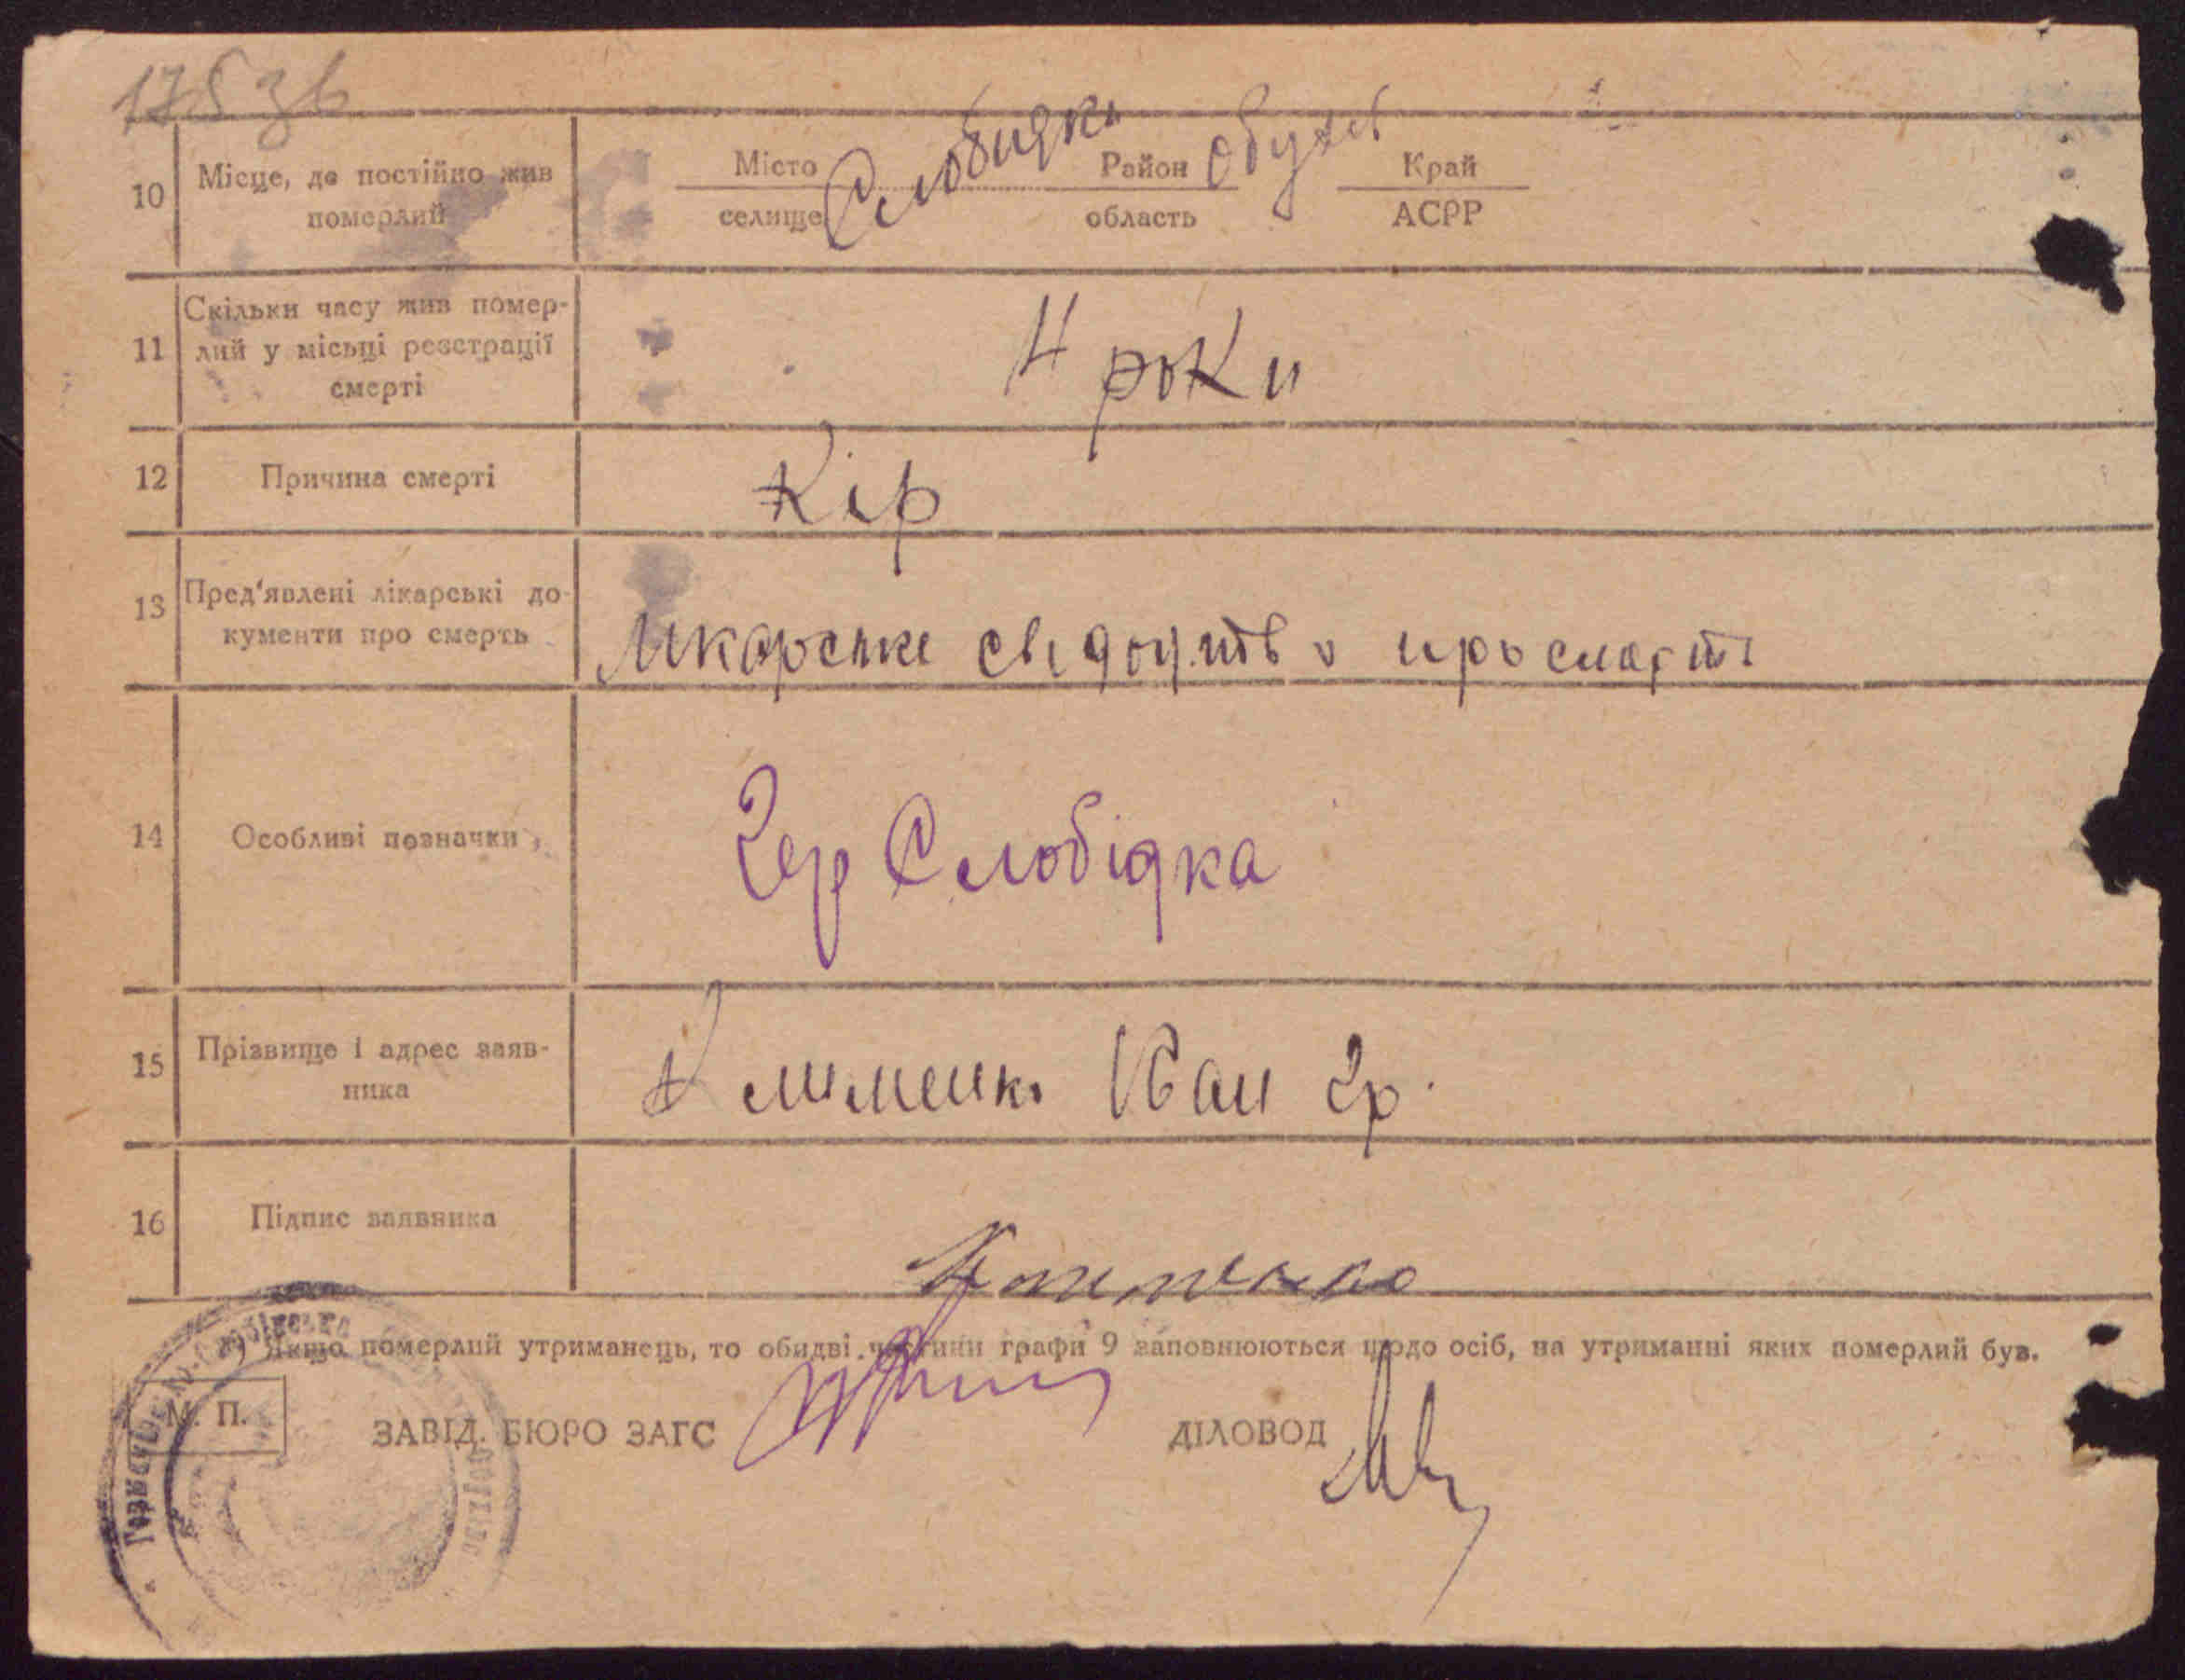 175 зв
10 Місце, де постійно жив померлий
Місто селище Слобидка Район область Обухів Край АСРР
11 Скільки часу жив помер-
лий у місьці реєстрації
смерті
4 роки
12 Причина смерті Кір
13 Пред'явлені лікарські до-
кументи про смерть
Лікарське свідоцтво про смерть
14 Особливі позначки Гер Слобідка
15 Прізвище і адрес заяв-
ника
Клименко Іван Гр.
16 Підпис заявника
Клименко
*) Якщо померлий утриманець, то обидві частини графи 9 заповнюються щодо осіб, на утриманні яких померлий був.
М. П.
ЗАВІД. БЮРО ЗАГС ДІЛОВОД